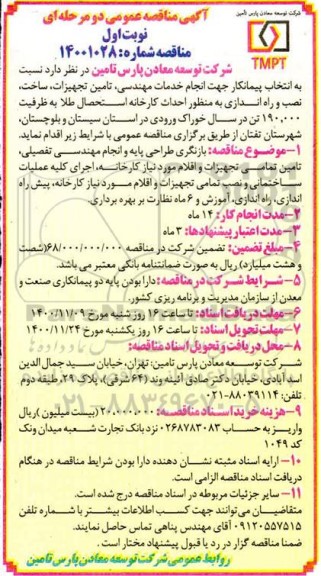 شرکت توسعه معادن پارس تامین
TMPT
آگهی مناقصه عمومی دو مرحله ای
نوبت اول
مناقصه شماره: 14001028
شرکت توسعه معادن پارس تامین در نظر دارد نسبت
به انتخاب پیمانکار جهت انجام خدمات مهندسی، تامین تجهیزات، ساخت،
نصب و راه اندازی به منظور احداث کارخانه استحصال طلا به ظرفیت
190,000 تن در سال خوراک ورودی در استان سیستان و بلوچستان،
شهرستان تفتان از طریق برگزاری مناقصه عمومی با شرایط زیر اقدام نماید.
1-موضوع مناقصه: بازنگری طراحی پایه و انجام مهندسی تفصیلی،
تامین تمامی تجهیزات و اقلام مورد نیاز کارخانه، اجرای کلیه عملیات
ساختمانی و نصب تمامی تجهیزات و اقلام مورد نیاز کارخانه، پیش راه
اندازی، راه اندازی، آموزش و 6 ماه نظارت بر بهره برداری.
2-مدت انجام کار: 14 ماه
3-مدت اعتبار پیشنهادها: 3 ماه
4-مبلغ تضمین: تضمین شرکت در مناقصه 68/000/000/000(شصت
و هشت میلیارد) ریال به صورت ضمانتنامه بانکی معتبر می باشد.
5-شرایط شرکت در مناقصه: دارا بودن پایه دو پیمانکاری صنعت و
معدن از سازمان مدیریت و برنامه ریزی کشور.
6-مهلت دریافت اسناد: تا ساعت 16 روز شنبه مورخ 1400/11/09
7-مهلت تحویل اسناد: تا ساعت 16 روز یکشنبه مورخ 1400/11/24
8-محل دریافت و تحویل اسناد مناقصه:
شرکت توسعه معادن پارس تامین: تهران، خیابان سید جمال الدین
اسد آبادی، خیابان دکتر صادق آئینه وند (64 شرقی)، پلاک 29، طبقه دوم
تلفن: 88039114-021
9-هزینه خرید اسناد مناقصه: 20.000.000 (بیست میلیون )ریال
واریز به حساب 0268783083 نزد بانک تجارت شعبه میدان ونک
کد 1049
10- ارایه اسناد مثبته نشان دهنده دارا بودن شرایط مناقصه در هنگام
دریافت اسناد مناقصه الزامی است.
11- سایر جزئیات مربوطه در اسناد مناقصه درج شده است.
متقاضیان می توانند جهت کسب اطلاعات بیشتر با شماره تلفن
09120557515 آقای مهندس پناهی تماس حاصل نمایند.
ضمنا مناقصه گزار در رد یا قبول پیشنهاد مختار است .
روابط عمومی شرکت توسعه معادن پارس تامین